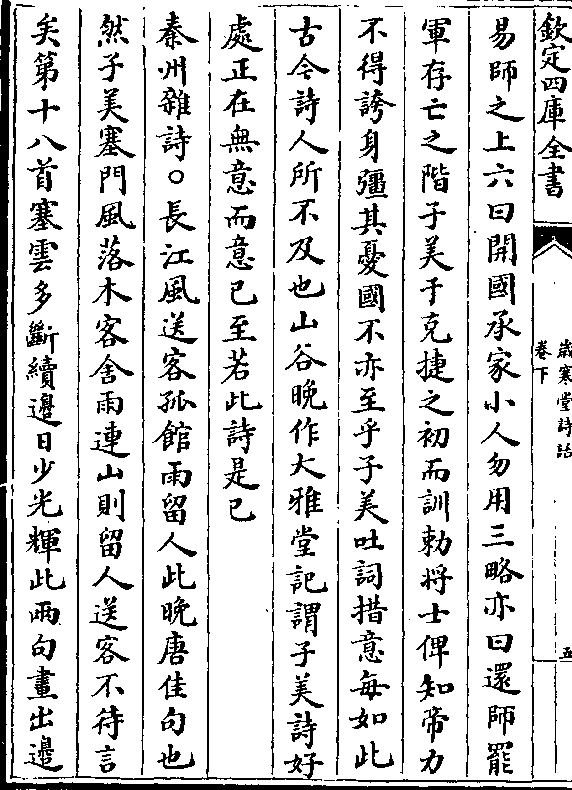 欽定四庫全書
歲寒堂詩話
卷下
五
易師之上六曰開國承家小人勿用三略亦曰還師罷
軍存亡之階子美于克捷之初而訓勅將士俾知帝力
不得誇身彊其憂國不亦至乎子美吐詞措意每如此
古今詩人所不及也山谷晚作大雅堂記謂子美詩好
處正在無意而意已至若此詩是已
秦州雜詩○長江風送客孤館雨留人此晚唐佳句也
然子美塞門風落木客舍雨連山則留人送客不待言
矣第十八首塞雲多斷續邊日少光輝此兩句畫出邊